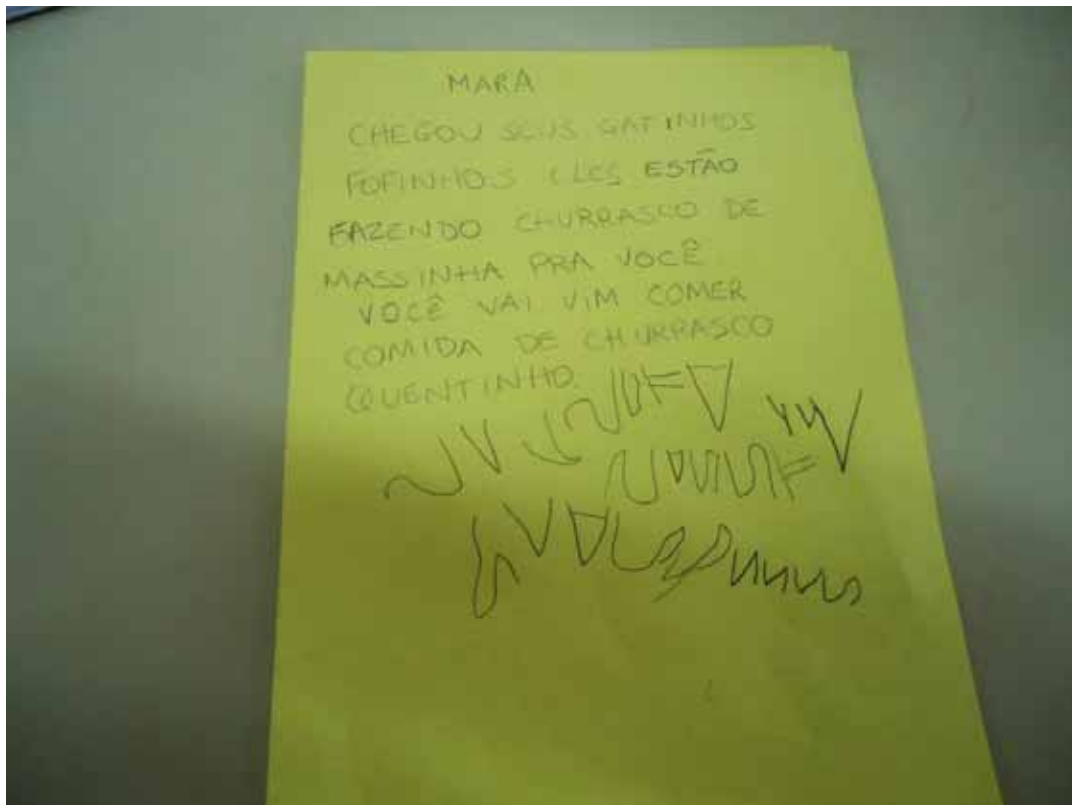 MARA
CHEGOU SEUS GATINHOS
FOFINHOS ELES ESTÃO
FAZENDO CHURRASCO DE
MASSINHA PRA VOCÊ
VOCÊ VAI VIM COMER
COMIDA DE CHURRASCO
QUENTINHO.